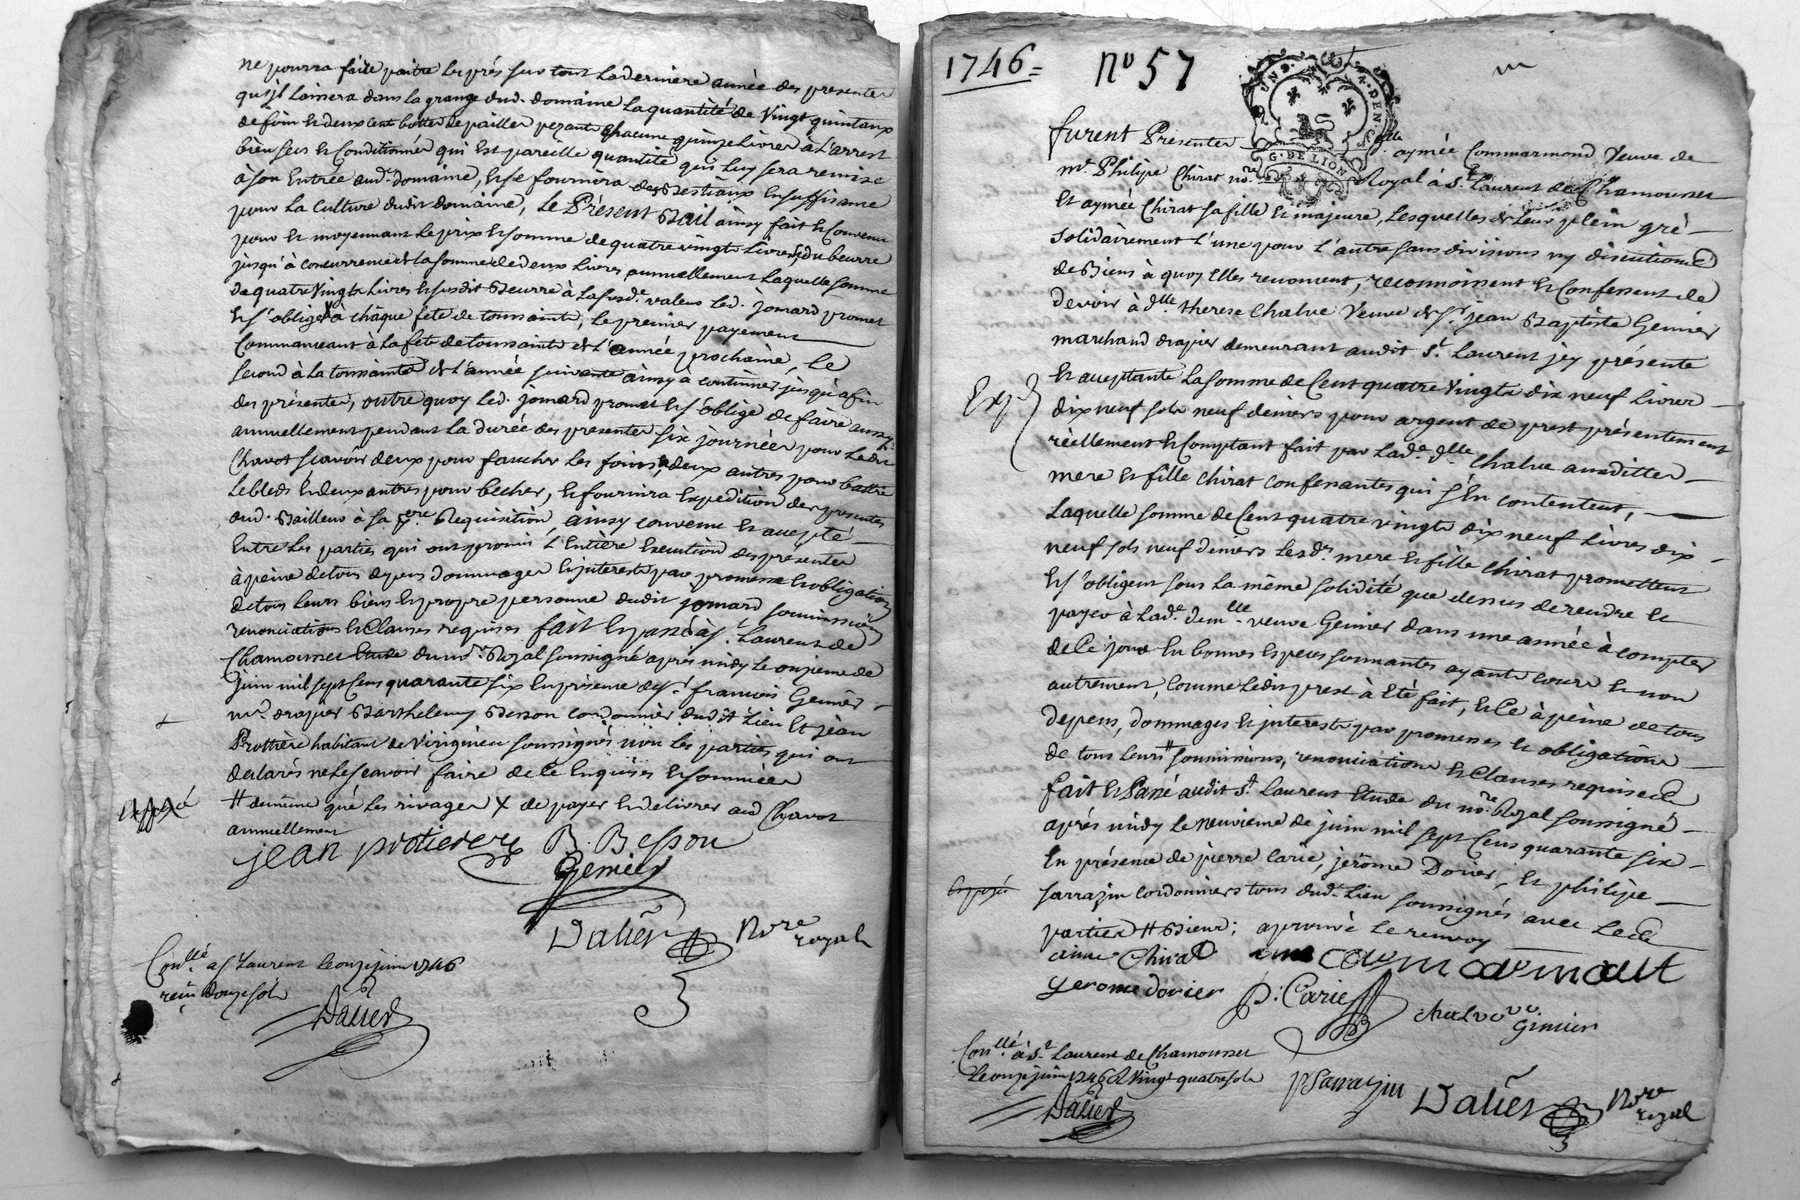 ne pourra faire paitre les prés sur tout la derniere année des presentes
qu'jl laissera dans la grange dud. domaine la quantité de vingt quintaux
de foin et deux cent bottes de pailles pezante chacune quinze livres à l'arrest
bien secs et conditionnés qui est pareille quantité qui luy sera remise
à son entrée aud. domaine, et se fournira de bestiaux en suffisance
pour la culture dudit domaine, Le Présent Bail ainsy fait et convenu
pour et moyennant le prix et somme de quatre vingts livres du beurre
jusqu'à concurrence de la somme de deux livres annuellement laquelle somme
de quatre vingts livres et susdit beurre à la susde. valeur led. jomard promet
et s'oblige X à chaque fete de toussaints, le premier payement
commanceant à la fete de toussaints de l'année prochaine, Le
second à la toussaints de l'année suivante ainsy à continuer jusqu'a fin
des présentes, outre quoy led. jomard promet et s'oblige de faire aussy
annuellement pendant la durée des presentes six journées pour ledit
Chavot scavoir deux pour faucher les foins, deux autres pour battre
le bled et deux autres pour becher, et fournira expedition des presentes
aud. Bailleur à sa 1ere Requisition, ainsy convenu et accepté
entre les parties qui ont promis l'entière execution des présentes
à peine de tous depens dommages et interests par promesse et obligation
de tous leurs biens et propre personne dudit jomard soumissions
renonciations et clauses requises fait et passé à St. Laurent de
Chamousset Etude du nore. Royal soussigné après midy le onzieme de
juin mil sept cens quarante six en présence de sr. francois Genier
md. drapier Barthelemy Besson cordonnier dudit Lieu et jean
Prottière habitant de Virigneu soussignés non les parties qui ont
declarés ne le scavoir faire de ce enquises et sommées
# demême que les rivages X de payer et delivrer aud Chavot
annuellement
Expédié
jean protiere B. Besson
Genier
Dalier Nore royal
Conllé a St Laurent le onze juin 1746
reçu douze sols
Dalier
1746 = No 57
G. DE LION
furent Présentes dlle aymée Commarmond Veuve de
mr. Philipe Chirat nore. Royal à St. Laurent de Chamousset
et aymée Chirat sa fille et majeure, Lesquelles de leur plein gré
solidairement l'une pour l'autre sans divisions ny discutions
de Biens à quoy elles renoncent, reconnoissent et confessent de
devoir à dlle. therese Chalue Veuve de sr. jean Baptiste Genier
marchand drapier demeurant audit St. Laurent jcy présente
et acceptante la somme de Cent quatre vingts dix neuf Livres
dix neuf sols neuf deniers pour argent de prest présentement
Exp
réellement et comptant fait par lade. dlle. Chalue ausdittes
mere et fille Chirat confessantes qui s'en contentent,
Laquelle somme de Cent quatre vingts dix neuf Livres dix
neuf sols neuf deniers lesds. mere et fille Chirat promettent
et s'obligent sous la même solidité que dessus de rendre et
payer à lade. demlle. veuve Genier dans une année à compter
de ce jour en bonnes especes sonnantes ayants cours et non
autrement, comme ledit prest à eté fait, et ce à peine de tous
depens, dommages et interests par promesses et obligations
de tous leurs # soumissions, renonciations et clauses requises
fait et Passé audit St. Laurent Etude du nore. Royal soussigné
après midy le neuvieme de juin mil sept cens quarante six
en présence de pierre Carie, jerôme Dorier, et philipe
Expédié
sarrazin cordonniers tous dud. Lieu soussignés avec lesd.
parties # Biens; aprouvé le renvoy
aimé Chirat
yerome dorier P. Carie chalue ve.
Genier
Conllé à St. Laurent de Chamousset
le onze juin 1746 R vingt quatre sols
Dalier
P Sarrazin Dalier Nore royal